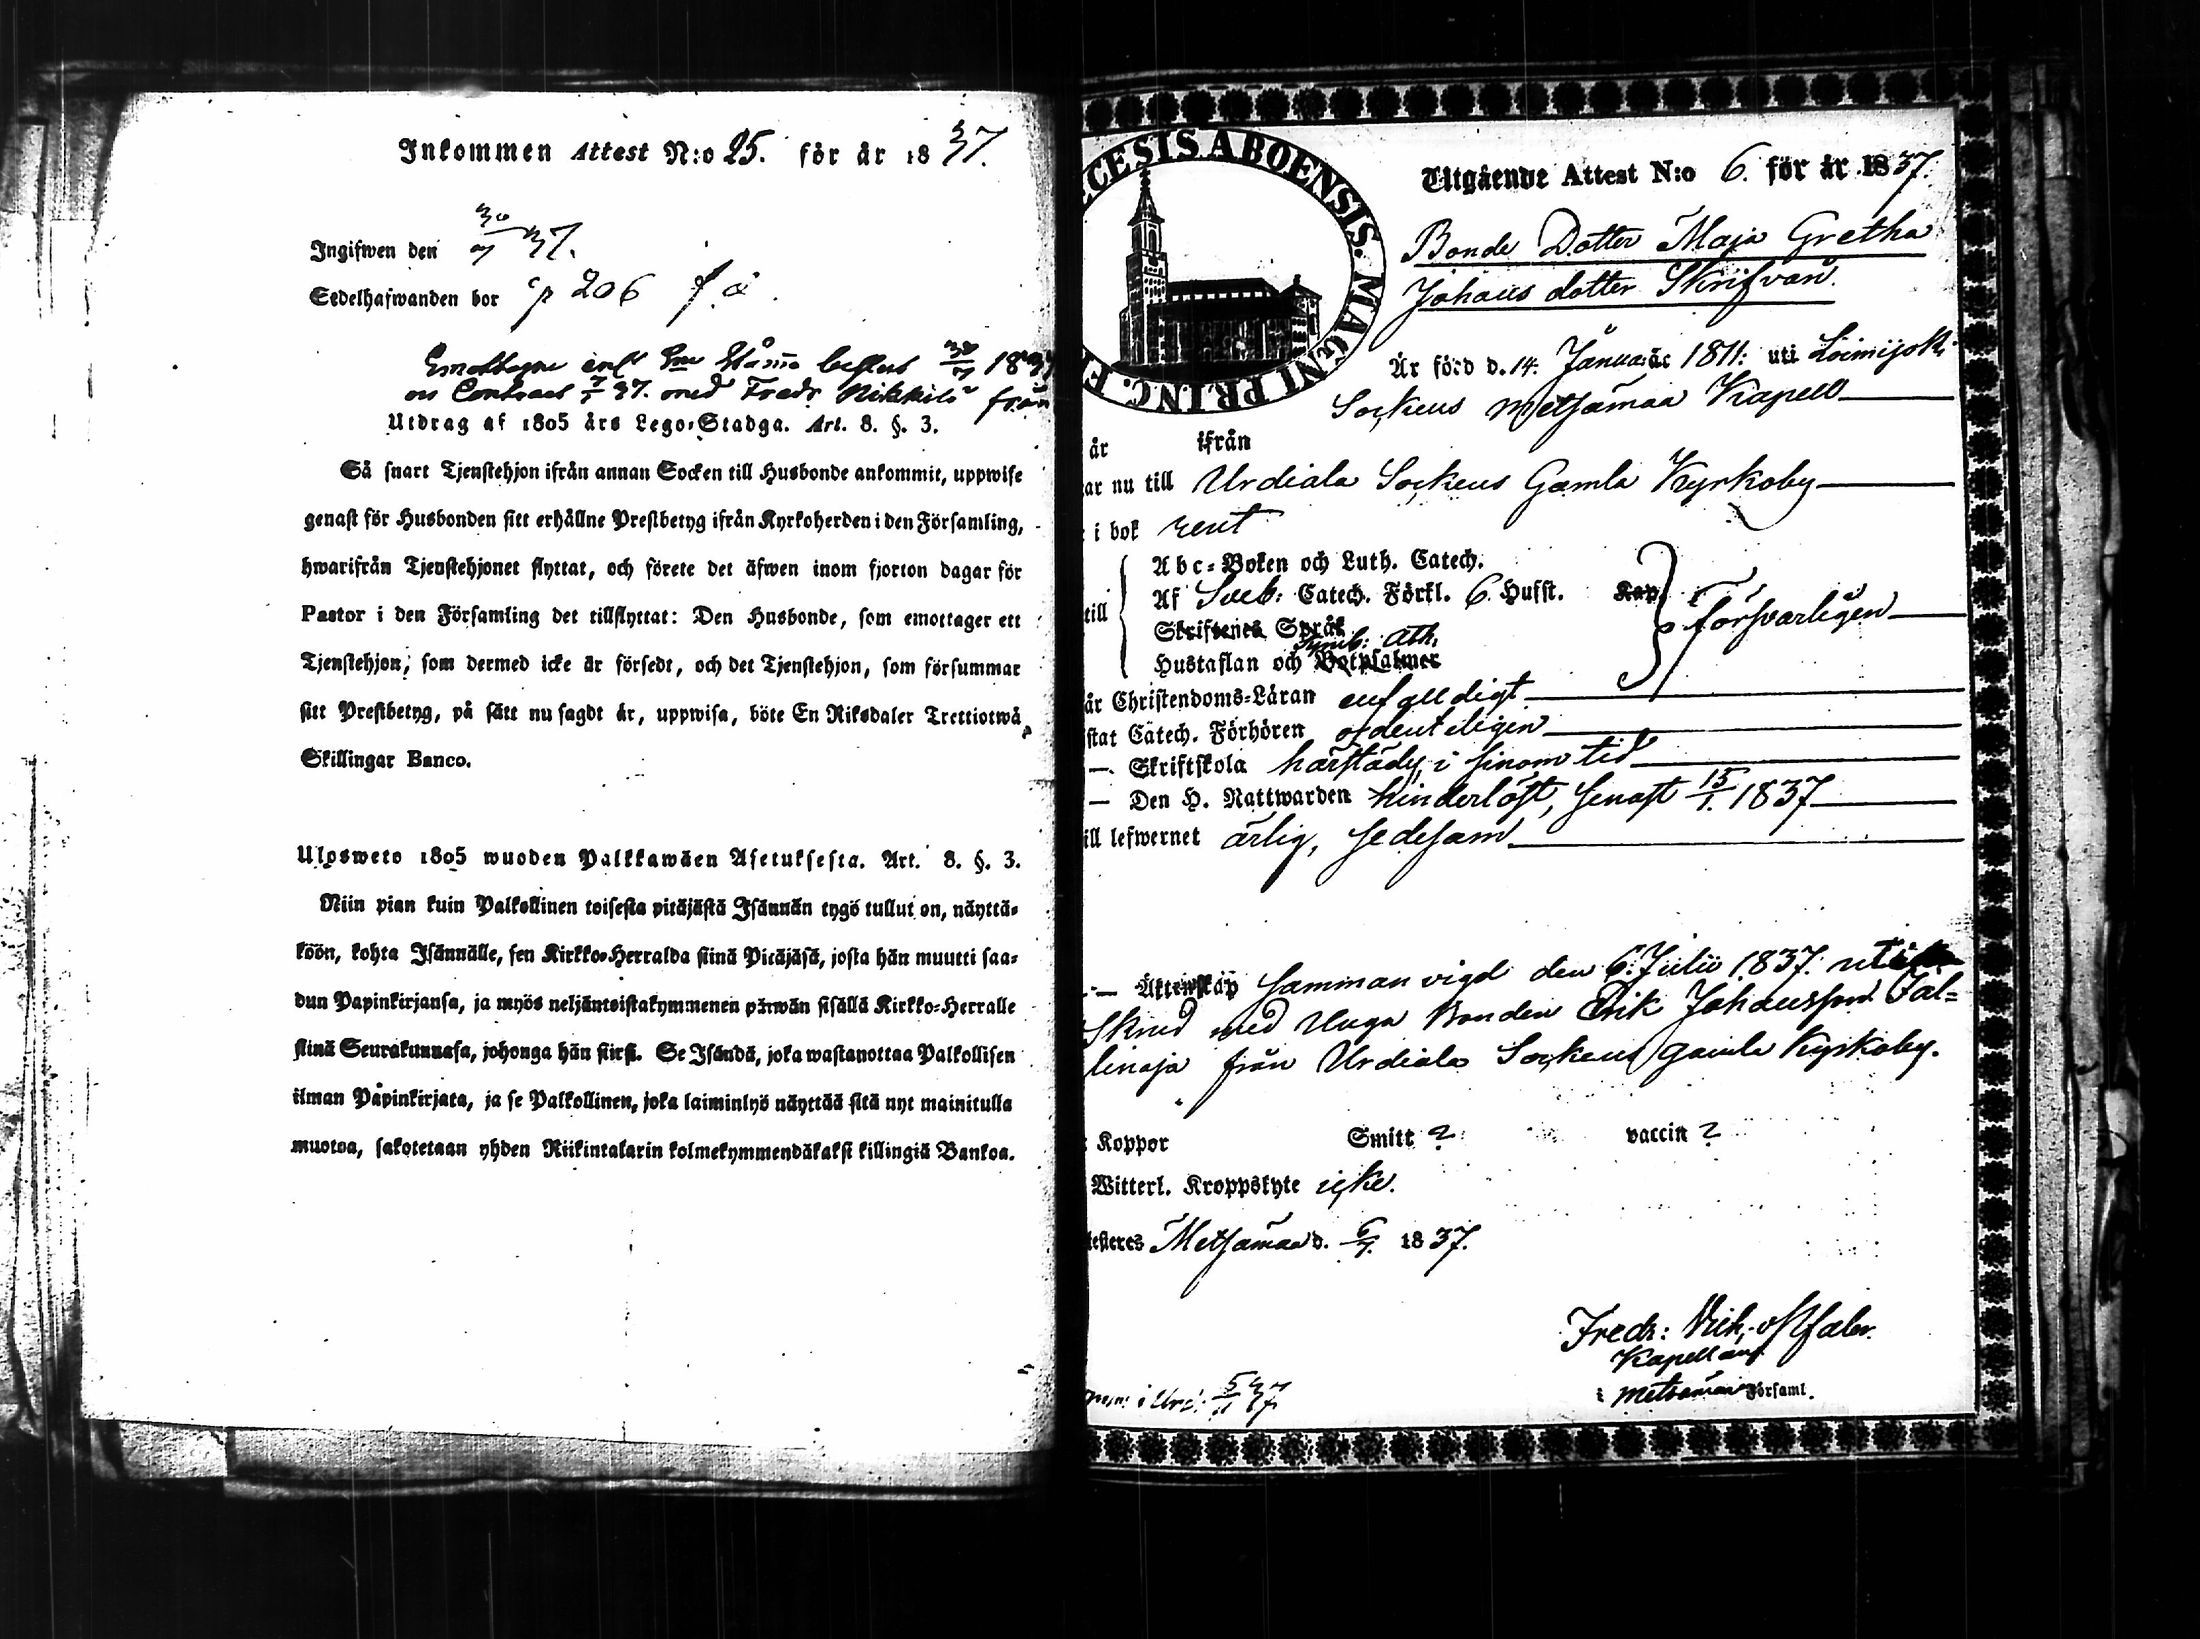 Inkommen Attest N:o 25. för år 1837.
Ingifwen den 30/7 37.
Sedelhafwanden bor p 206 f. ö.
Emottagne enl. Sm Stäma beslut 30/7 1837
Contract 37. med Fredr Nikkilä från
Utdrag af 1805 års Lego-Stadga. Art. 8. §. 3.
Så snart Tjenstehjon ifrån annan Socken till Husbonde ankommit, uppwise
genast för Husbonden sitt erhållne Prestbetyg ifrån Kyrkoherden i den Församling,
hwarifrån Tjenstehjonet flyttat, och förete det äfwen inom fjorton dagar för
Pastor i den Församling det tillflyttat: Den Husbonde, som emottager ett
Tjenstehjon, som dermed icke är försedt, och det Tjenstehjon, som försummar
sitt Prestbetyg, på sätt nu sagdt är, uppwisa, böte En Riksdaler Trettiotwå
Skillingar Banco.
Ulosweto 1805 wuoden Palkkawäen Asetuksesta. Art. 8. §. 3.
Niin pian kuin Palkollinen toisesta pitäjästä Isännän tygö tullut on, näyttä-
köön, kohta Isännälle, sen Kirkko-Herralda siinä Pitäjäsä, josta hän muutti saa-
dun Papinkirjansa, ja myös neljäntoistakymmenen päiwän sisällä Kirkko-Herralle
siinä Seurakunnasa, johonga hän siirsi. Se Isändä, joka wastanottaa Palkollisen
ilman Papinkirjata, ja se Palkollinen, joka laiminlyö näyttää sitä nyt mainitulla
muotoa, sakotetaan yhden Riikintalarin kolmekymmendäkaksi killingiä Bankoa.
ECESIS ABOENSIS. MAGNI PRINC. F
Utgående Attest N:o 6. för år 1837.
Bonde Dotter Maja Gretha
Johans dotter Skrifvar.
Är född d. 14. Januarii 1811. uti Loimijoki
Sockens Metsämaa Kapell
år ifrån
ar nu till Urdiala Sockens Gamla Kyrkoby
i bok rent
Abc-Boken och Luth. Catech.
till Af Sveb: Catech. Förkl. 6. Husst. Kap. Försvarligen
Skriftenes Språk
Symb: Ath.
Hustaflan och Botpsalmer
är Christendoms-Läran enfalldigt
stat Catech. Förhören ordenteligen
— Skriftskola härstädes i sinom tid
— Den H. Nattwarden hinderlöst, senast 15/1. 1837
ill lefwernet ärlig, sedesam
— Äktenskap Samman vigd den 6. Julii 1837. uti
Skrud med Unga Bonden Erik Johansson Jal=
linoja från Urdiala Sockens gamla Kyrkoby.
Koppor Smitt ? vaccin ?
Witterl. Kroppslyte icke.
testeres Metsämaa d. 6/7. 1837.
Fredr: Mich: Östfaler.
Kapellan
i Metsämaa Församl.
i Urd: 5/11 37